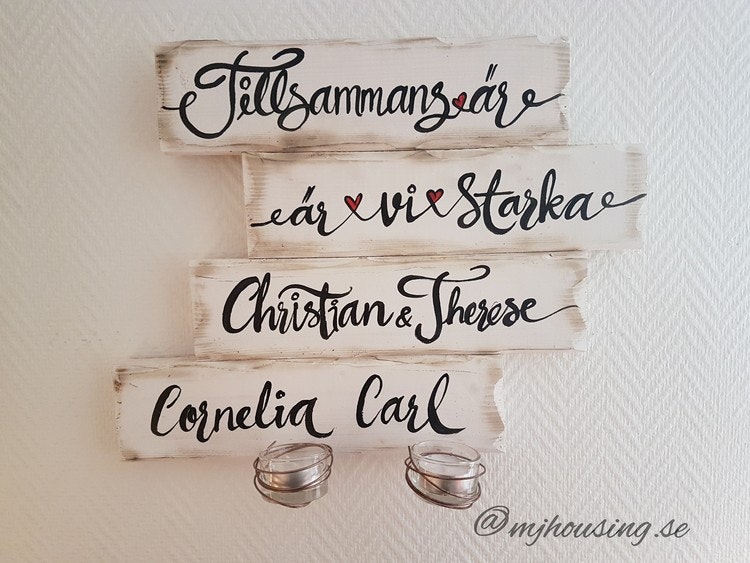 Tillsammans är
är vi Starka
Christian & Therese
Cornelia Carl
@mjhousing.se